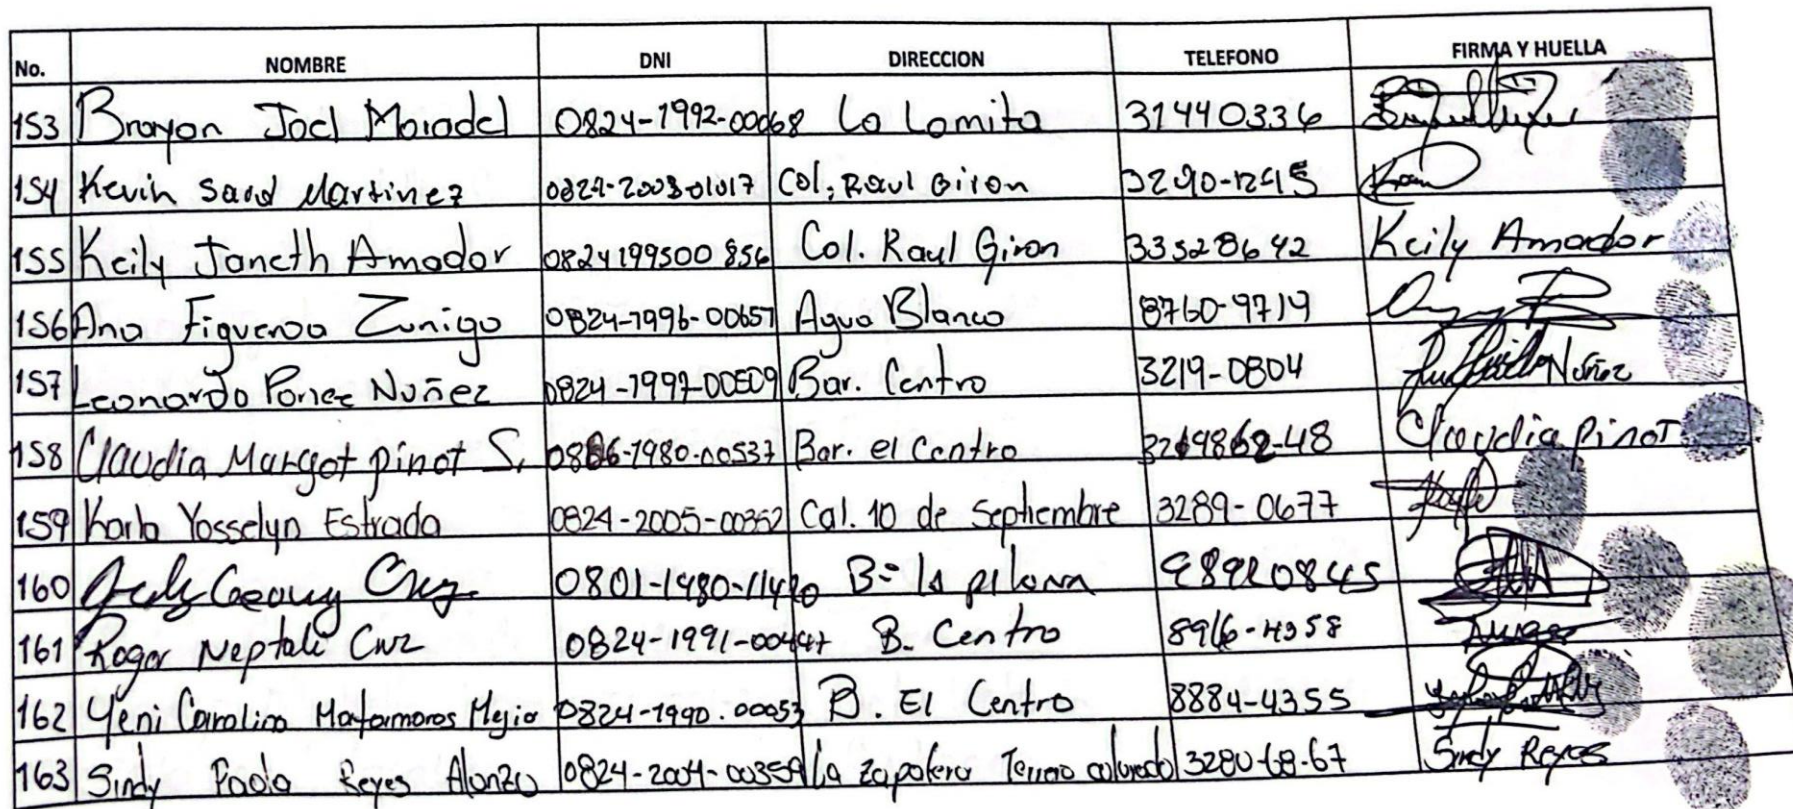 No. NOMBRE DNI DIRECCION TELEFONO FIRMA Y HUELLA
153 Brayan Joel Moradel 0824-1992-00068 La Lomita 31440336
154 Kevin Saud Martinez 0824-2003-01017 Col, Raul Giron 3290-1295
155 Keily Janeth Amador 0824199500856 Col. Raul Giron 33528642 Keily Amador
156 Ana Figueroa Zuniga 0824-1996-00657 Agua Blanca 8760-9719
157 Leonardo Ponce Nuñez 0824-1997-00509 Bar. Centro 3219-0804 Nuñez
158 Claudia Margot pinot S. 0806-1980-00537 Bar. el Centro 3269862-48 Claudia pinot
159 Karla Yosselyn Estrada 0824-2005-00352 Col. 10 de Septiembre 3289-0677
160 Cruz 0801-1980-11420 B= la pilona 98920845
161 Roger Neptali Cruz 0824-1991-00447 B. Centro 8916-4358
162 Yeni Carolina Matamoros Mejia 0824-1990.00053 B. El Centro 8884-4355
163 Sindy Paola Reyes Alonzo 0824-2004-00359 La Zapotera Terrero colorado 3280-68-67 Sindy Reyes